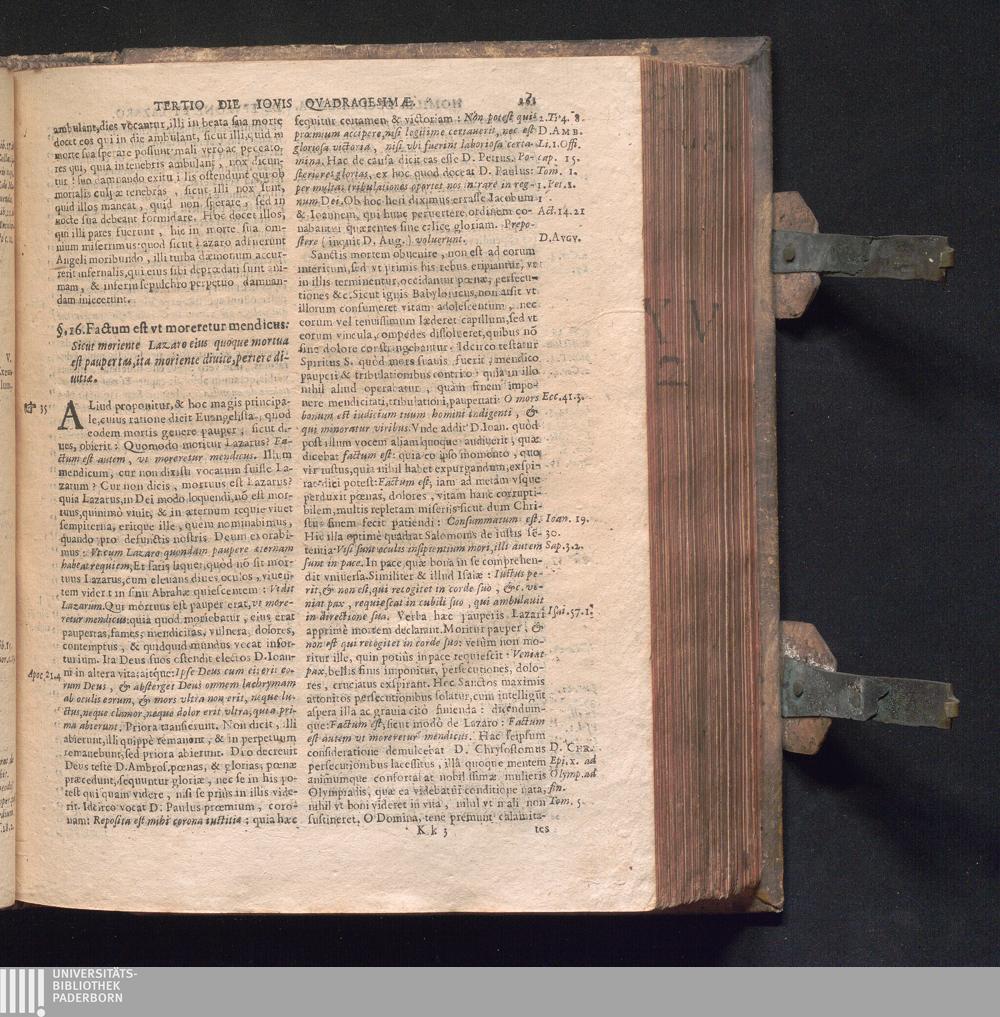 TERTIO DIE IOVIS QVADRAGESIMÆ.
ambulant, dies vocantur, illi in beata sua morte
docet eos qui in die ambulant, sicut illi, quid in
morte sua sperare possunt: mali verò ac peccato-
res qui, quia in tenebris ambulant, nox dicun-
tur: suo damnando exitu illis ostendunt qui ob
mortalis culpæ tenebras, sicut illi nox sunt,
quid illos maneat, quid non sperare, sed in
nocte sua debeant formidare. Hoc docet illos,
qui illi pares fuerunt, hic in morte sua om-
nium miserrimus: quod sicut Lazaro adfuerunt
Angeli moribundo, illi turba dæmonum accur-
rerit infernalis, qui eius sibi deprædati sunt ani-
mam, & inferni sepulchro perpetuo damnan-
dam iniecerunt.
§. 16. Factum est vt moreretur mendicus:
Sicut moriente Lazaro eius quoque mortua
est paupertas, ita moriente diuite, periere di-
uitiæ.
35
ALiud proponitur, & hoc magis principa-
le, cuius ratione dicit Euangelista, quod
eodem mortis genere pauper, sicut di-
ues, obierit: Quomodo moritur Lazarus? Fa-
ctum est autem, vt moreretur mendicus. Illum
mendicum, cur non dixisti vocatum fuisse La-
zarum? Cur non dicis, mortuus est Lazarus?
quia Lazarus, in Dei modo loquendi, nō est mor-
tuus, quinimò viuit, & in æternum requie viuet
sempiterna, eritque ille, quem nominabimus,
quando pro defunctis nostris Deum exorabi-
mus: Vt cum Lazaro quondam paupere æternam
habeat requiem, Et satis liquet, quod nō sit mor-
tuus Lazarus, cum eleuans diues oculos, viuen-
tem viderit in sinu Abrahæ quiescentem: Vidit
Lazarum. Qui mortuus est pauper erat, vt more-
retur mendicus: quia quod moriebatur, eius erat
paupertas, fames, mendicitas, vulnera, dolores,
contemptus, & quidquid mundus vocat infor-
tunium. Ita Deus suos ostendit electos D. Ioan-
ni in altera vita: aitque: Ipse Deus cum eis erit eo-
Apoc. 21. 4
rum Deus, & absterget Deus omnem lachrymam
ab oculis eorum, & mors vltra non erit, neque lu-
ctus, neque clamor, neque dolor erit vltra, quia pri-
ma abierunt. Priora transierunt. Non dicit, illi
abierunt, illi quippe remanent, & in perpetuum
remanebunt, sed priora abierunt. Duo decreuit
Deus teste D. Ambros. pœnas, & glorias; pœnæ
præcedunt, sequuntur gloriæ, nec se in his po-
test qui quam videre, nisi se prius in illis vide-
rit. Idcirco vocat D. Paulus præmium, coro-
nam: Reposita est mihi corona iustitiæ; quia hæc
sequitur certamen & victoriam: Non potest quis
præmium accipere, nisi legitime certauerit, nec est
gloriosa victoria, nisi vbi fuerint laboriosa certa-
mina. Hac de causa dicit eas esse D. Petrus. Po-
steriores glorias, ex hoc quod doceat D. Paulus:
per multas tribulationes oportet nos intrare in reg-
num Dei. Ob hoc heri diximus errasse Iacobum
& Ioannem, qui hunc peruertere ordinem co-
nabantur quærentes sine calice gloriam. Prepo-
stere (inquit D. Aug.) voluerunt.
2. Ti. 4. 8.
D. AMB.
Li. 1. Offi.
cap. 15.
Tom. 1.
1. Pet. 1.
Act. 14. 21
D. AVGV.
Sanctis mortem obuenire, non est ad eorum
interitum, sed vt primis his rebus eripiantur, vt
in illis terminentur, occidantur pœnæ, persecu-
tiones &c. Sicut ignis Babylonicus, non arsit vt
illorum consumeret vitam adolescentum, nec
corum vel tenuissimum læderet capillum, sed vt
eorum vincula, compedes dissolueret, quibus nō
sine dolore constringebantur. Idcirco testatur
Spiritus S. quod mors suauis fuerit, mendico
pauperi & tribulationibus contrito: quia in illo
nihil aliud operabatur, quàm finem impo-
nere mendicitati, tribulationi, paupertati: O mors
bonum est iudicium tuum homini indigenti, &
qui minoratur viribus. Vnde addit D. Ioan. quòd
post illum vocem aliam quoque audiuerit, quæ
dicebat factum est: quia eo ipso momento, quo
vir iustus, quia nihil habet expurgandum, exspi-
rat, dici potest: Factum est, iam ad metam vsque
perduxit pœnas, dolores, vitam hanc corrupti-
bilem, multis repletam miseriis: sicut dum Chri-
stus finem fecit patiendi: Consummatum est.
Hic illa optimè quadrat Salomonis de iustis sē-
tentia Visi sunt oculis insipientium mori, illi autem
sunt in pace. In pace, quæ bona in se comprehen-
dit vniuersa. Similiter & illud Isaiæ: Iustus pe-
rit, & non est, qui recogitet in corde suo, &c. ve-
niat pax, requiescat in cubili suo, qui ambulauit
in directione sua. Verba hæc pauperis Lazari
apprimè mortem declarant. Moritur pauper, &
non est qui recogitet in corde suo: verùm non mo-
ritur ille, quin potiùs in pace requiescit: Veniat
pax, bellis finis imponitur, persecutiones, dolo-
res, cruciatus exspirant. Hec Sanctos maximis
attonitos persecutionibus solatur, cum intelligūt
aspera illa ac grauia citò finienda: dicendum-
que: Factum est, sicut modò de Lazaro: Factum
est autem vt moreretur mendicus. Hac seipsum
consideratione demulcebat D. Chrysostomus
persecutionibus lacessitus, illâ quoque mentem
animumque confortabat nobilissimæ mulieris
Olympiadis, quæ ea videbatur conditione nata,
nihil vt boni videret in vita, nihil vt mali non
sustineret, O Domina, tene premunt calamita-
Ecc. 41. 3.
Ioan. 19.
30.
Sap. 3. 2.
Isai. 57. 1.
D. CHR.
Epi. x. ad
Olymp. ad
fin.
Tom. 5.
Kk 3
tes
UNIVERSITÄTS-
BIBLIOTHEK
PADERBORN